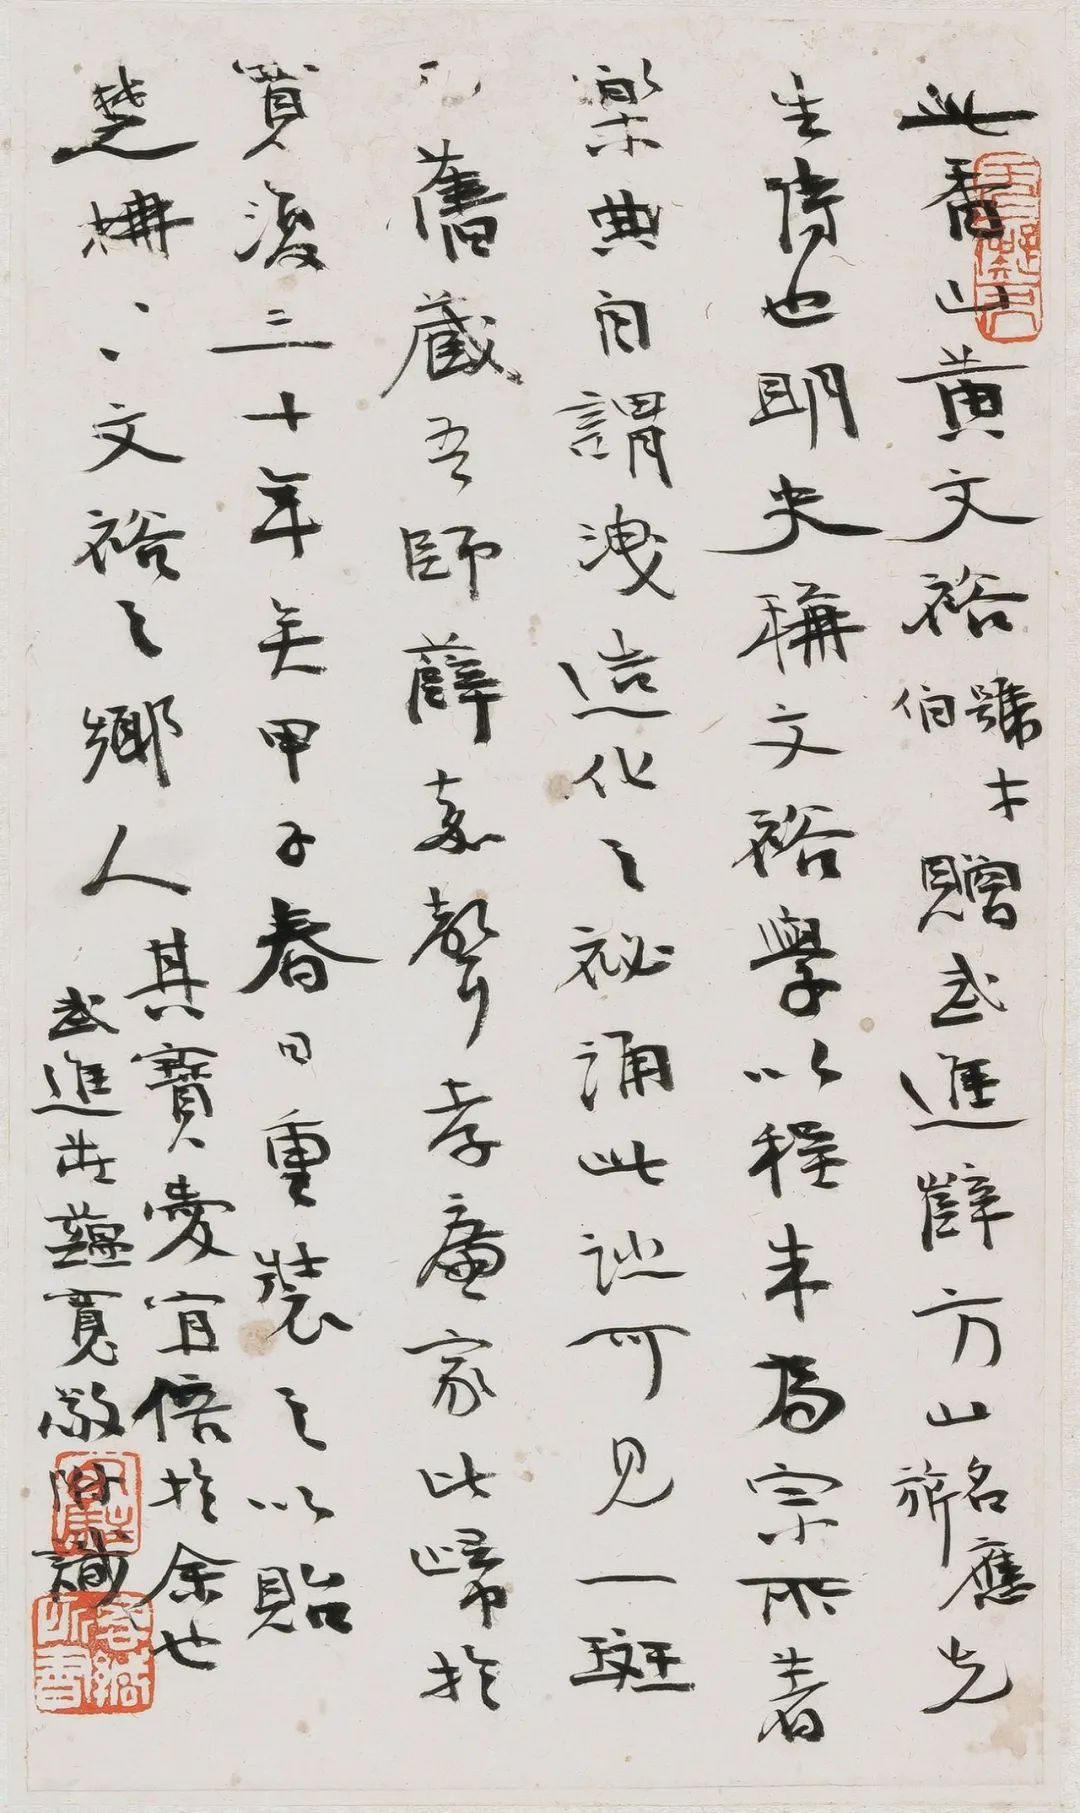 此香山黃文裕號才伯贈武進薛方山名應旂先
生詩也明史稱文裕學以程朱為宗所著
樂典自謂洩造化之祕誦此迹可見一斑
舊藏吾師薛嘉聲孝廉家此歸於
寬復三十年矣甲子春日重裝之以貽
楚構、、文裕之鄉人其寶愛宜倍於余也
武進莊蘊寬敬附識